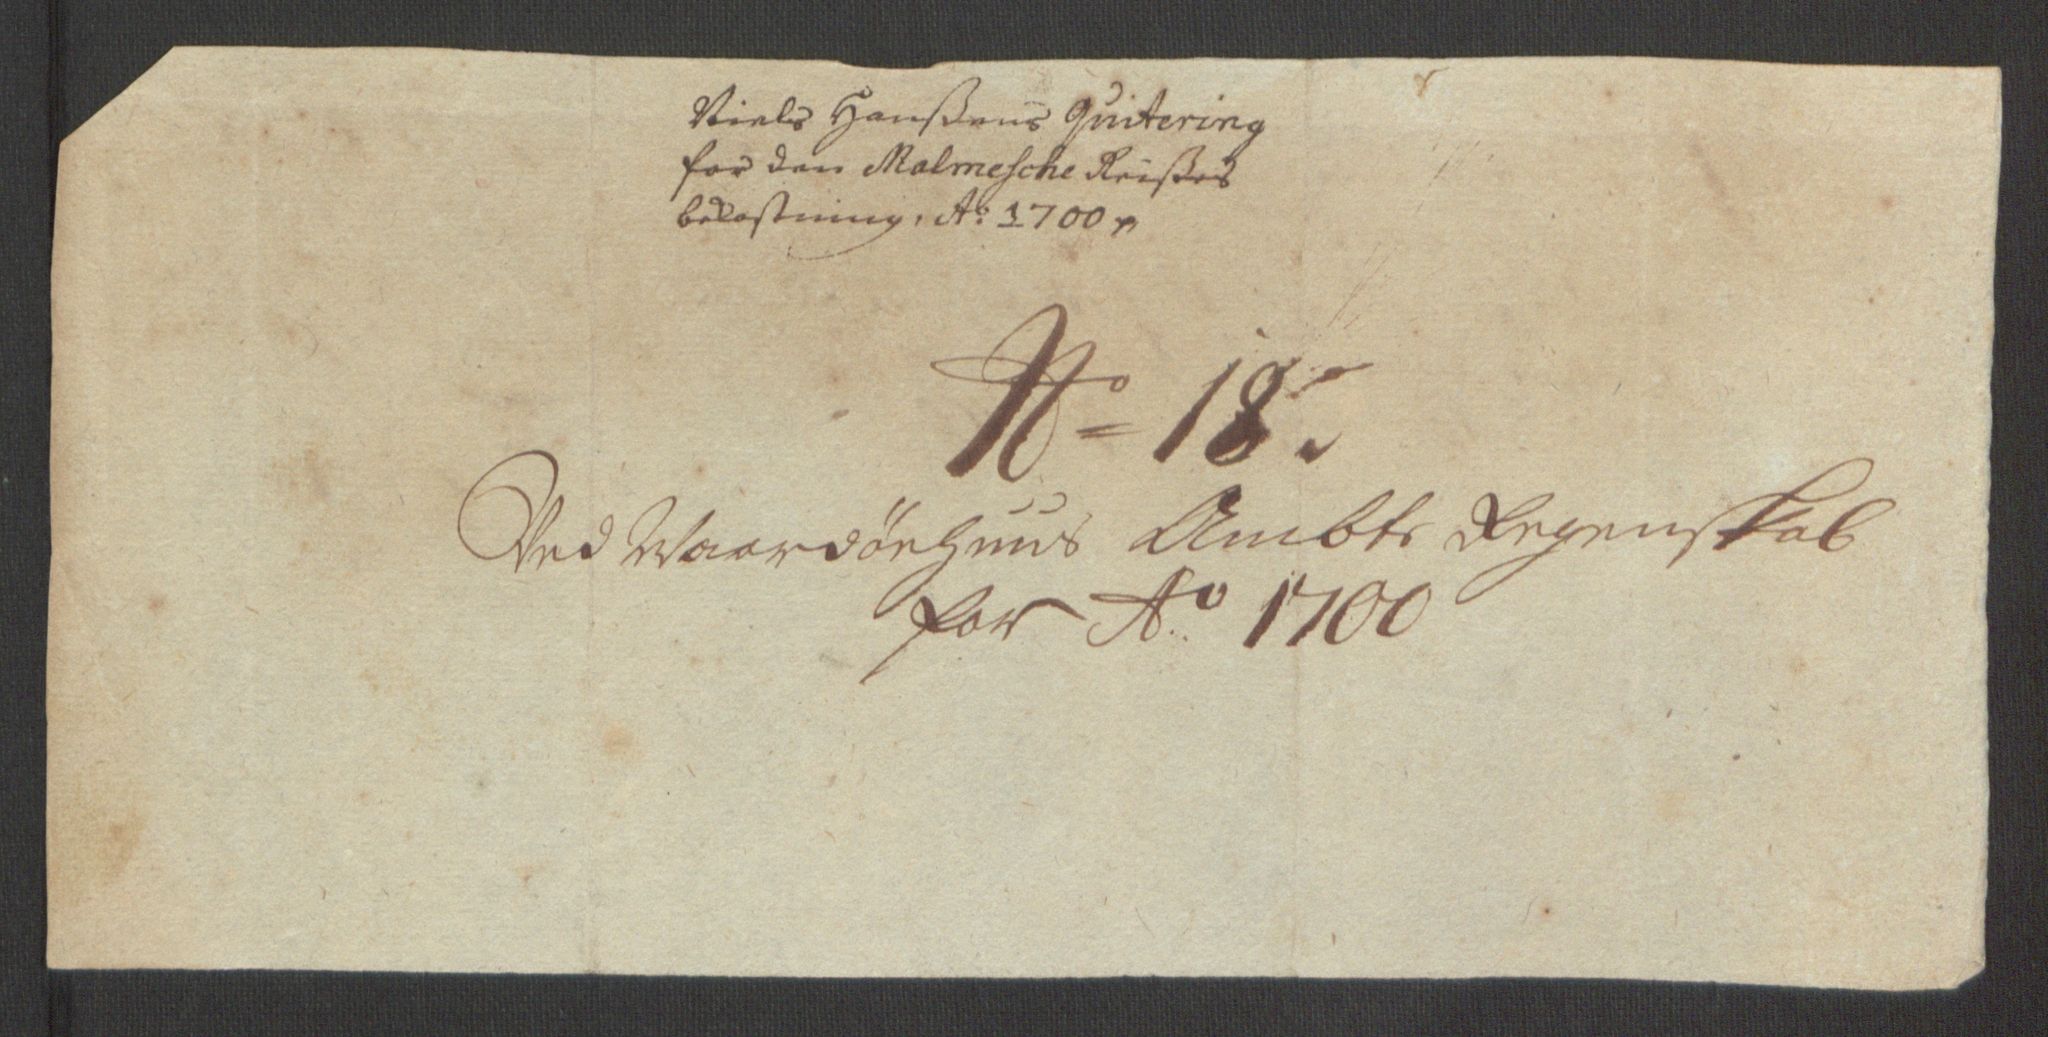 Niels Hanßens Quitering
for den Malmesche Reißes
bekostning, Aō 1700
No 18
Ved Waardöehuus Ambts Regenskab
for Ao 1700